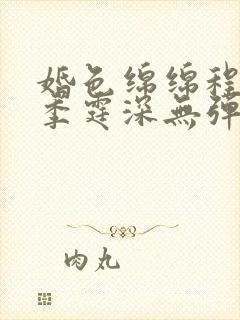 婚色绵绵程
季霆深無弹
肉丸